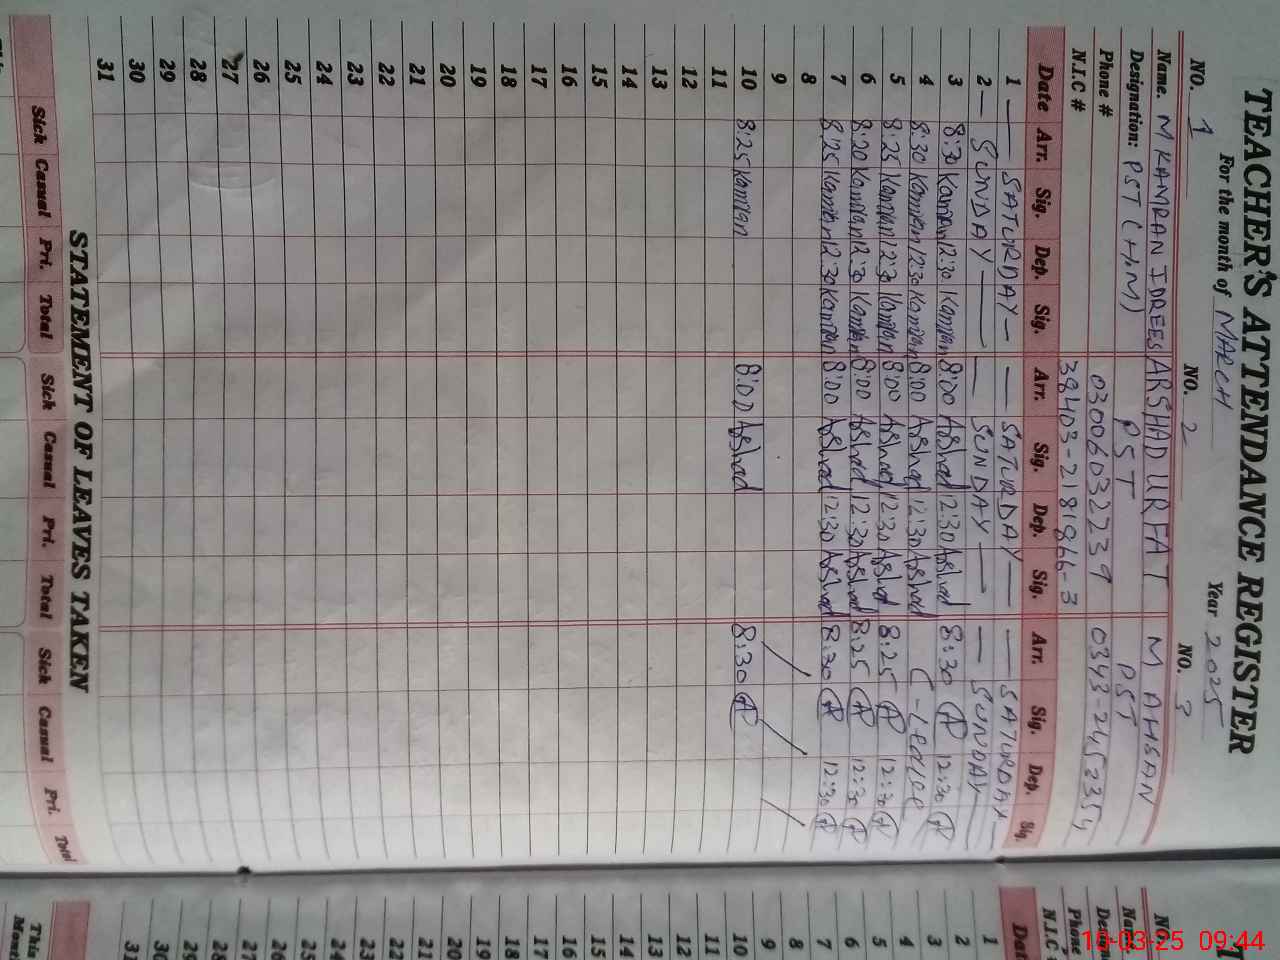 TEACHER'S ATTENDANCE REGISTER
For the month of MARCH Year 2025
NO. 1 NO. 2 NO. 3
Name. M KAMRAN IDREES ARSHAD URFAT M AHSAN
Designation: PST (H.M) PST PST
Phone # 03006032239 0343-2452354
N.I.C # 38403-2181966-3
Date Arr. Sig. Dep. Sig. Arr. Sig. Dep. Sig. Arr. Sig. Dep. Sig.
1 — SATURDAY — — SATURDAY — — SATURDAY —
2 — SUNDAY — — SUNDAY — — SUNDAY —
3 8:30 Kamran 12:30 Kamran 8:00 Arshad 12:30 Arshad 8:30 A 12:30 A
4 8:30 Kamran 12:30 Kamran 8:00 Arshad 12:30 Arshad C-Leave
5 8:25 Kamran 12:30 Kamran 8:00 Arshad 12:30 Arshad 8:25 A 12:30 A
6 8:20 Kamran 12:30 Kamran 8:00 Arshad 12:30 Arshad 8:25 A 12:30 A
7 8:25 Kamran 12:30 Kamran 8:00 Arshad 12:30 Arshad 8:30 A 12:30 A
8
9
10 8:25 Kamran 8:00 Arshad 8:30 A
11
12
13
14
15
16
17
18
19
20
21
22
23
24
25
26
27
28
29
30
31
STATEMENT OF LEAVES TAKEN
Sick Casual Pri. Total Sick Casual Pri. Total Sick Casual Pri. Total
NO.
Phone
N.I.C
Dat
1
2
3
4
5
6
7
8
9
10
11
12
13
14
15
16
17
18
19
20
21
22
23
24
25
26
27
28
29
30
31
This
10-03-25 09:44